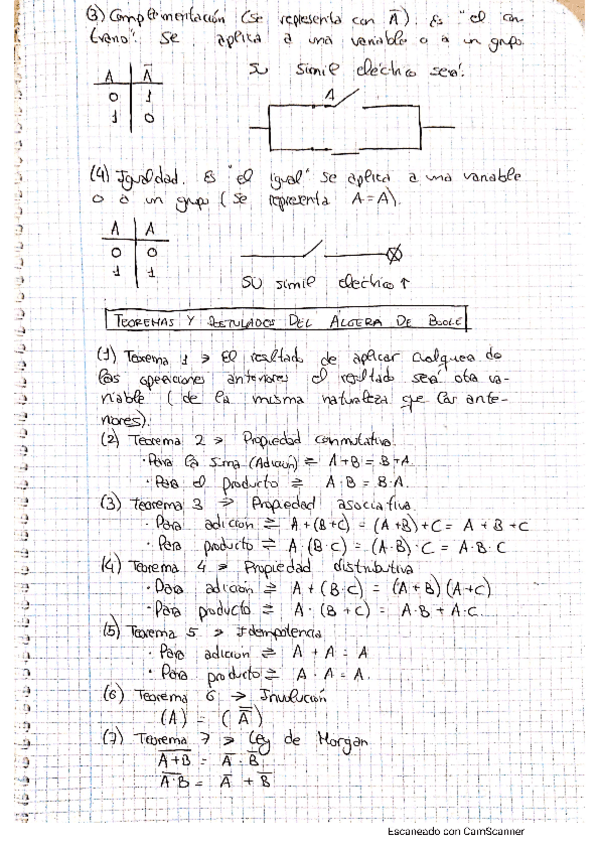 (3) Complementación (se representa con A̅). Es "el con
trario". Se aplica a una variable o a un grupo.
A A̅
0 1
1 0
SU simil eléctrico será:
A
(4) Igualdad. Es "el igual" se aplica a una variable
o a un grupo (se representa A=A).
A A
0 0
1 1
SU simil electrico ↑
TEOREMAS Y POSTULADOS DEL ÁLGEBRA DE BOOLE
(1) Teorema 1 → El resultado de aplicar cualquea de
las operaciones anteriores el resultado será otra va-
riable (de la misma naturaleza que las ante-
riores).
(2) Teorema 2 → Propiedad conmutativa.
· Para la suma (Adición) ⇒ A+B = B+A.
· Para el producto ⇒ A·B = B·A.
(3) Teorema 3 → Propiedad asociativa
· Para adicion ⇒ A+(B+C) = (A+B)+C = A+B+C
· Para producto ⇒ A·(B·C) = (A·B)·C = A·B·C
(4) Teorema 4 → Propiedad distributiva
· Para adición ⇒ A+(B·C) = (A+B)(A+C)
· Para producto ⇒ A·(B+C) = A·B + A·C.
(5) Teorema 5 → Idempotencia
· Para adicion ⇒ A + A = A
· Para producto ⇒ A · A = A.
(6) Teorema 6 → Involución
(A) = (A̿)
(7) Teorema 7 → Ley de Morgan
A̅+̅B̅ = A̅ · B̅
A̅·̅B̅ = A̅ + B̅
Escaneado con CamScanner